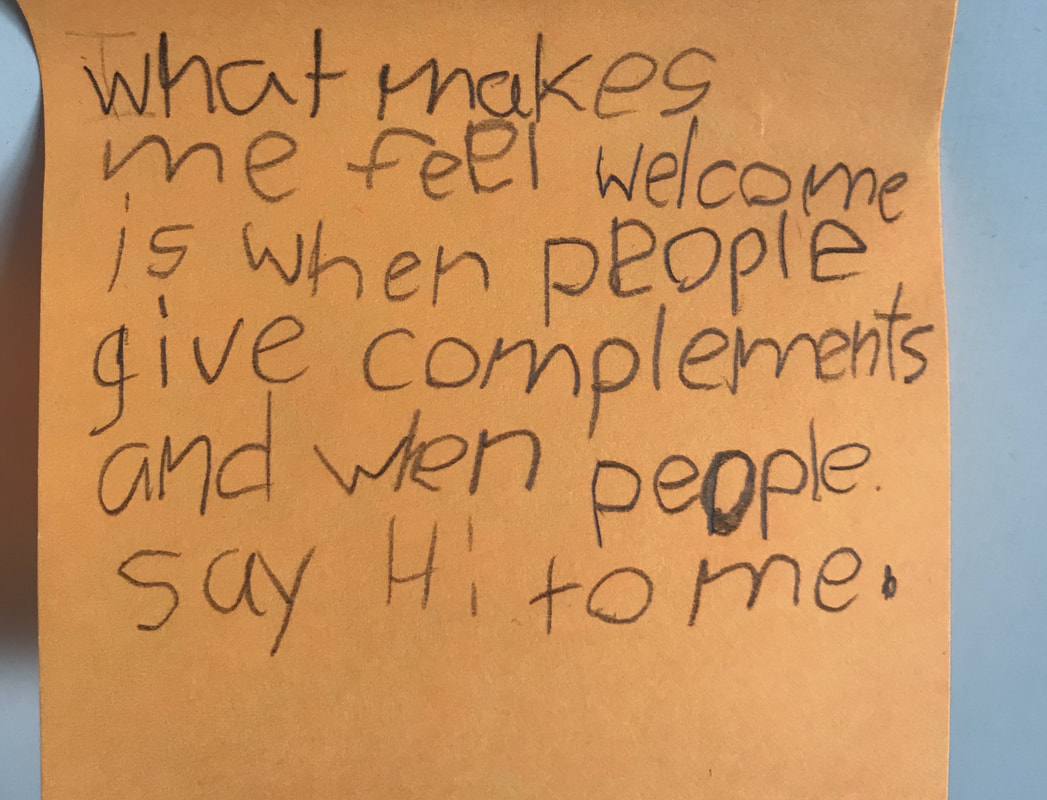 What makes
me feel welcome
is when people
give complements
and when people.
say Hi to me.